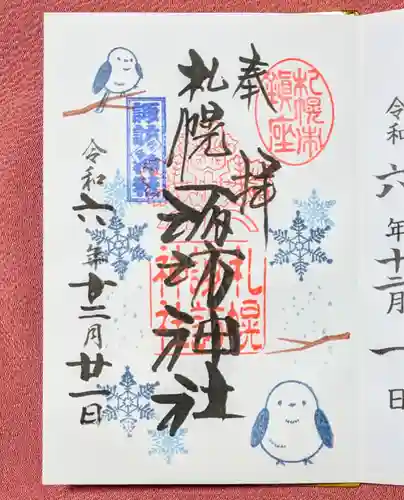 奉拝
札幌市鎮座
札幌諏訪神社
札幌諏訪神社
諏訪神社
令和六年十二月廿一日
令和六年十二月一日